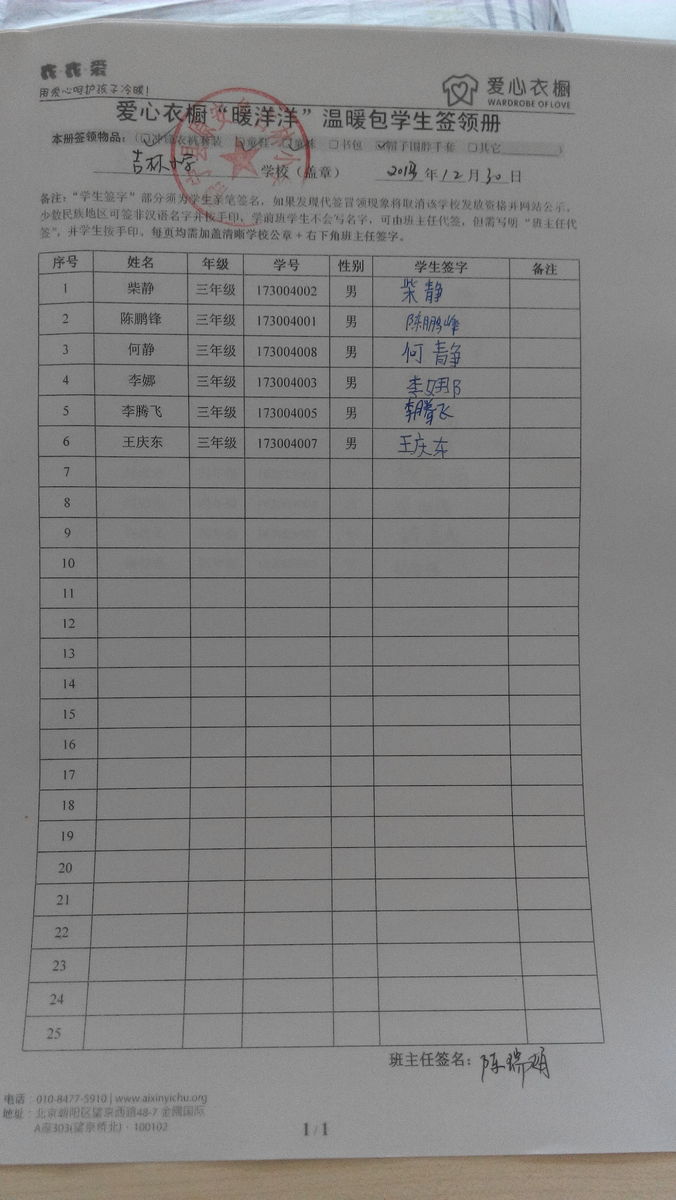 衣·衣·爱
用爱心呵护孩子冷暖!
爱心衣橱
WARDROBE OF LOVE
爱心衣橱“暖洋洋”温暖包学生签领册
本册签领物品：(☑冲锋衣帆套装 ☑童鞋 ☑童袜 □书包 ☑帽子围脖手套 □其它)
吉林小学 学校（盖章） 2013 年 12 月 30 日
备注：“学生签字”部分须为学生亲笔签名，如果发现代签冒领现象将取消该学校发放资格并网站公示，
少数民族地区可签非汉语名字并按手印，学前班学生不会写名字，可由班主任代签，但需写明“班主任代
签”，并学生按手印。每页均需加盖清晰学校公章+右下角班主任签字。
序号 姓名 年级 学号 性别 学生签字 备注
1 柴静 三年级 173004002 男 柴静
2 陈鹏锋 三年级 173004001 男 陈鹏峰
3 何静 三年级 173004008 男 何静
4 李娜 三年级 173004003 男 李娜
5 李腾飞 三年级 173004005 男 李腾飞
6 王庆东 三年级 173004007 男 王庆东
7
8
9
10
11
12
13
14
15
16
17
18
19
20
21
22
23
24
25
班主任签名：陈瑞娟
电话：010-8477-5910 | www.aixinyichu.org
地址：北京朝阳区望京西路48-7 金隅国际
A座303(望京桥北)·100102
1 / 1